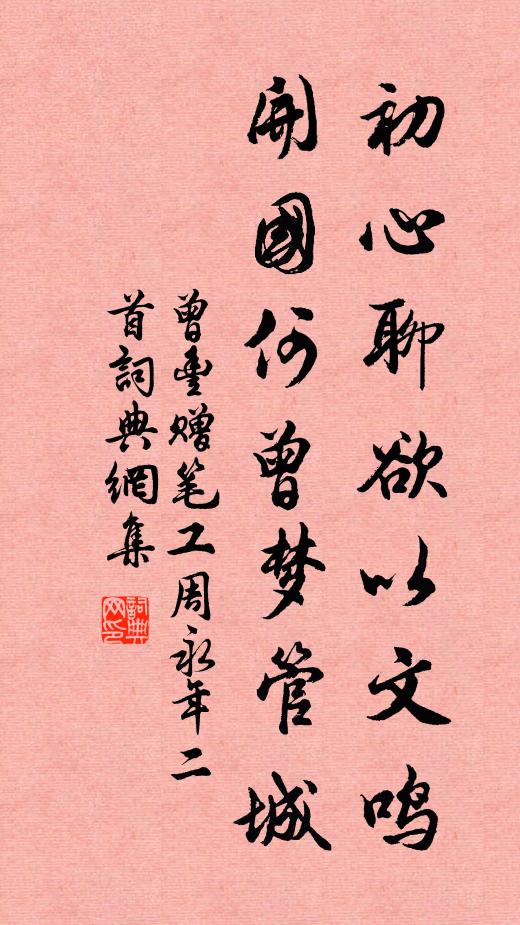 初心聊欲以文鸣
開國何曾梦管城
曾豊赠笔工周永年二
首詞典網集
詞典
网印